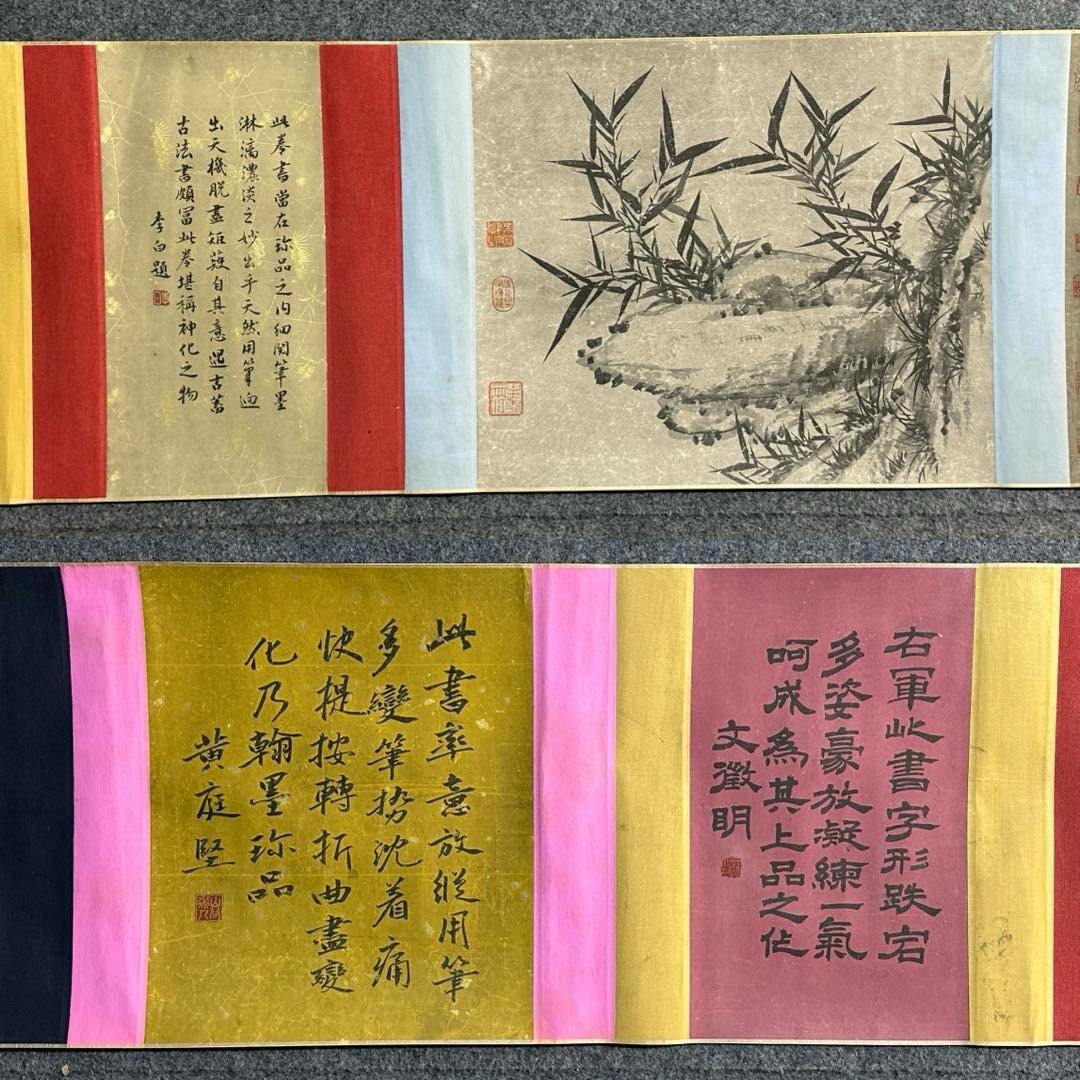 此卷書當在珎品之内細閱筆墨
淋漓濃淡之妙出乎天然用筆迥
出天機脫盡矩矱自其意過古蓄
古法書頗富此卷堪稱神化之物
李白題
此書率意放縱用筆
多變筆势沈着痛
快提按轉折曲盡變
化乃翰墨珎品
黄庭堅
右軍此書字形跌宕
多姿豪放凝練一氣
呵成為其上品之作
文徵明